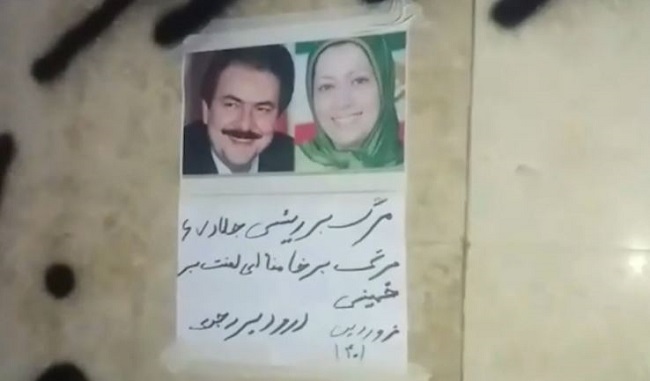 مرگ بر رئیسی جلاد ۶۷
مرگ بر خامنه ای لعنت بر
خمینی
درود بر رجوی
فروردین
۱۴۰۱